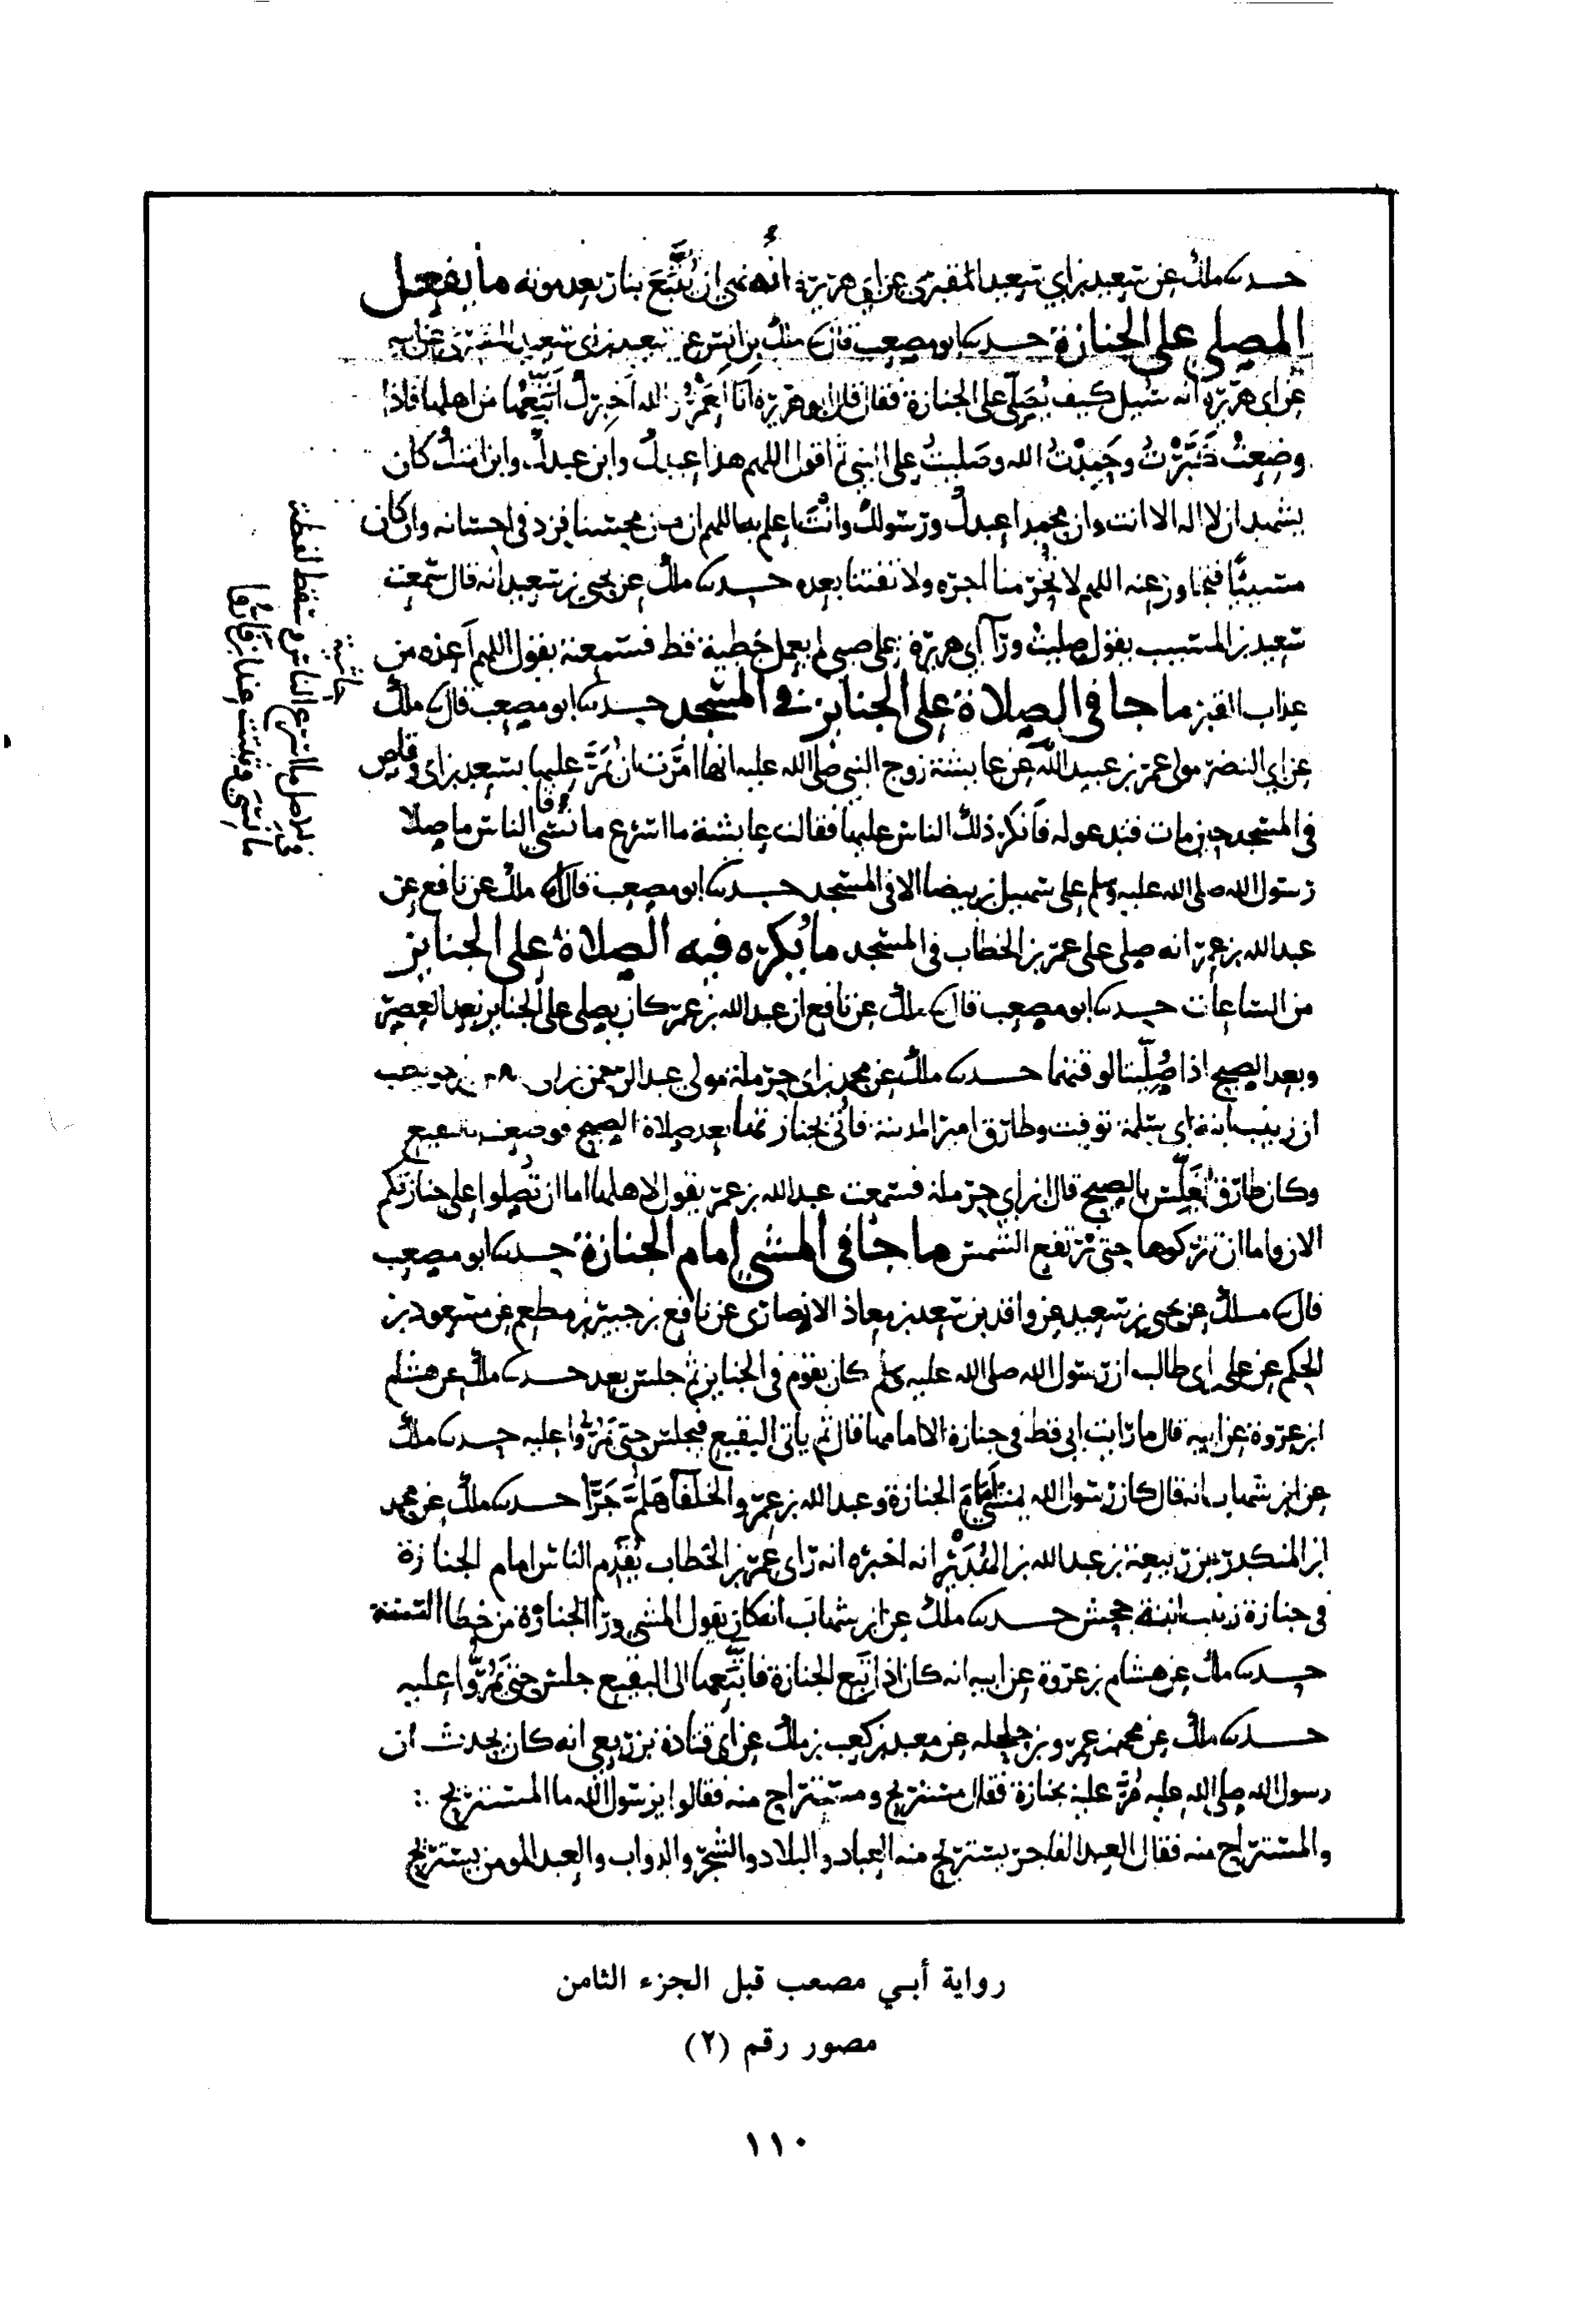 حدثنا ملك عن سعيد بن ابي سعيد المقبري عن ابي هريرة انه نهى ان يتبع بنار بعد موته ما يفعل
المصلي على الجنازة حدثنا ابو مصعب قال نا ملك بن انس عن سعيد بن ابي سعيد المقبري عن ابيه
عن ابي هريرة انه سيل كيف يُصَلّي على الجنازة فقال ابو هريرة انا لعَمْرُ الله اخبرك اتبعها من اهلها فاذا
وضعت كَبَّرْتُ وحَمِدْتُ الله وصليت على النبي ثم اقول اللهم هذا عبدك وابن عبدك وابن امتك كان
يشهد ان لا اله الا انت وان محمدا عبدك ورسولك وانت اعلم به اللهم ان كان محسنا فزد في احسانه وان كان
مسيئًا فتجاوز عنه اللهم لا تحرمنا اجره ولا تفتنا بعده حدثنا ملك عن يحيى بن سعيد انه قال سمعت
سعيد بن المسيب يقول صليت ورآ ابي هريرة على صبي لم يعمل خطية قط فسمعته يقول اللهم اعذه من
عذاب القبر ما جا في الصلاة على الجنايز في المسجد حدثنا ابو مصعب قال نا ملك
عن ابي النضر مولى عمر بن عبيد الله عن عايشة زوج النبي صلى الله عليه انها امرت ان يُمَرَّ عليها بسعد بن ابي وقاص
في المسجد حين مات فتدعو له فانكر ذلك الناس عليها فقالت عايشة ما اسرع ما نسي الناس ما صلا
رسول الله صلى الله عليه وسلم على سهيل بن بيضا الا في المسجد حدثنا ابو مصعب قال نا ملك عن نافع عن
عبد الله بن عمر انه صلي على عمر بن الخطاب في المسجد ما يُكره فيه الصلاة على الجنايز
من الساعات حدثنا ابو مصعب قال نا ملك عن نافع ان عبد الله بن عمر كان يصلي على الجنايز بعد العصر
وبعد الصبح اذا صُلِّيتا لوقتهما حدثنا ملك عن محمد بن ابي حرملة مولى عبد الرحمن بن ابي
ان زينب ابنة ابي سلمة توفيت وطارق امير المدينة فأُتي بجنازتها بعد صلاة الصبح فوضعت بالبقيع
وكان طارق يُغَلِّس بالصبح قال ابن ابي حرملة فسمعت عبد الله بن عمر يقول لاهلها اما ان تُصلوا على جنازتكم
الان واما ان تتركوها حتى ترتفع الشمس ما جا في المشي امام الجنازة حدثنا ابو مصعب
قال نا ملك عن يحيى بن سعيد عن واقد بن سعد بن معاذ الانصاري عن نافع بن جبير بن مطعم عن مسعود بن
الحكم عن علي بن ابي طالب ان رسول الله صلى الله عليه وسلم كان يقوم في الجنايز ثم جلس بعد حدثنا ملك عن هشام
ابن عروة عن ابيه قال ما رايت ابي قط في جنازة الا امامها قال ثم ياتي البقيع فيجلس حتى يَمُرُّوا عليه حدثنا ملك
عن ابن شهاب انه قال كان رسول الله يمشي أَمَامَ الجنازة وعبد الله بن عمر والخلفآ هَلُمَّ جَرًّا حدثنا ملك عن محمد
ابن المنكدر عن ربيعة بن عبد الله بن الهُدَيْر انه اخبره انه راى عمر بن الخطاب يُقَدِّم الناس امام الجنازة
في جنازة زينب ابنة جحش حدثنا ملك عن ابن شهاب انه كان يقول المشي ورآ الجنازة من خطا السنة
حدثنا ملك عن هشام بن عروة عن ابيه انه كان اذا تبع الجنازة فاتبعها الى البقيع جلس حتى يَمُرُّوا عليه
حدثنا ملك عن محمد بن عمرو بن حلحله عن معبد بن كعب بن ملك عن ابي قتادة بن ربعي انه كان يحدث ان
رسول الله صلى الله عليه مُرَّ عليه بجنازة فقال مستريح ومستراح منه فقالوا يرسول الله ما المستريح
والمستراح منه فقال العبد الفاجر يستريح منه العباد والبلاد والشجر والدواب والعبد المومن يستريح
حاشية
في الاصل ما اسرع الناس وسقط لفظة
ما نسي وثبتت عند
رواية أبي مصعب قبل الجزء الثامن
مصور رقم (٢)
١١٠